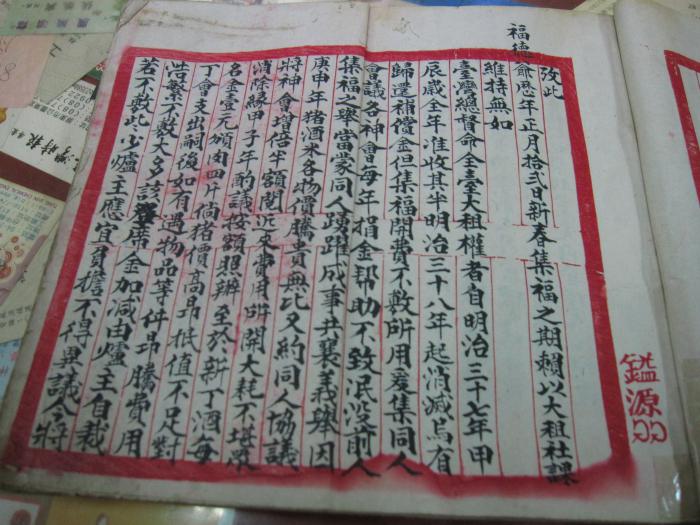 福德
攷此
命歷年正月拾弍日新春集福之期賴以大租社課
維持無如
臺灣總督命全臺大租權者自明治三十七年甲
辰歲全年准收其半明治三十八年起消滅烏有
歸還補償金但集福開費不敷所用爰集同人
會議各神會每年捐金幫助不致泯沒前人
集福之舉當蒙同人踴躍成事共襄義舉因
庚申年豬酒米各物價騰貴無比又約同人協議
將神會增倍半額閱近來費用所開大耗不堪眾
消除緣甲子年酌議按額照辦至於新丁酒每
名金壹元頒肉四斤倘豬價高昂抵值不足對
丁會支出嗣後如有遇物品等件昂騰費用
浩繁不敷大多請席金加減由爐主自裁
若不敷些少爐主應宜負擔不得異議今將
鎰源